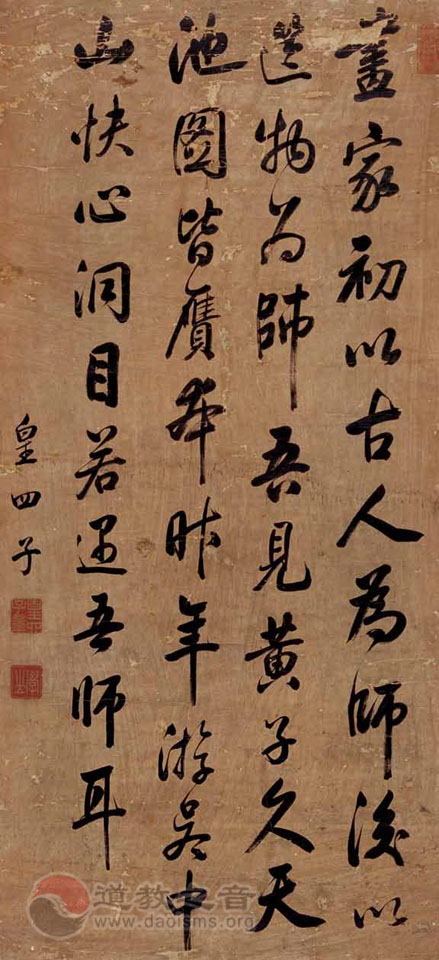 畫家初以古人為師後以
造物為師吾見黃子久天
池圖皆贗本昨年游吳中
山快心洞目若遇吾師耳
皇四子
道教之音
www.daoisms.org